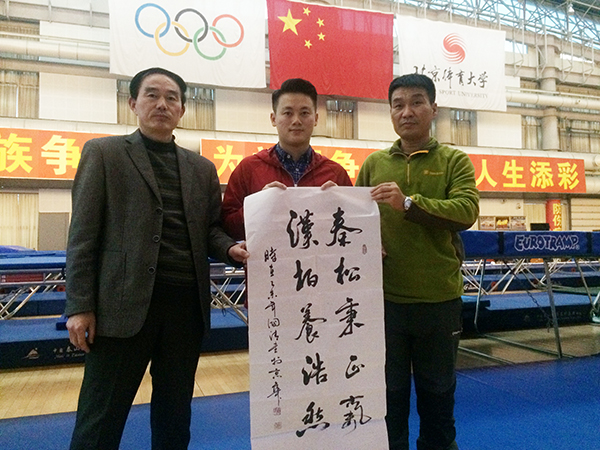 北京体育大学
SPORT UNIVERSITY
族争
为
争
人生添彩
EUROTRAMP
秦松秉正氣
漢柏養浩然